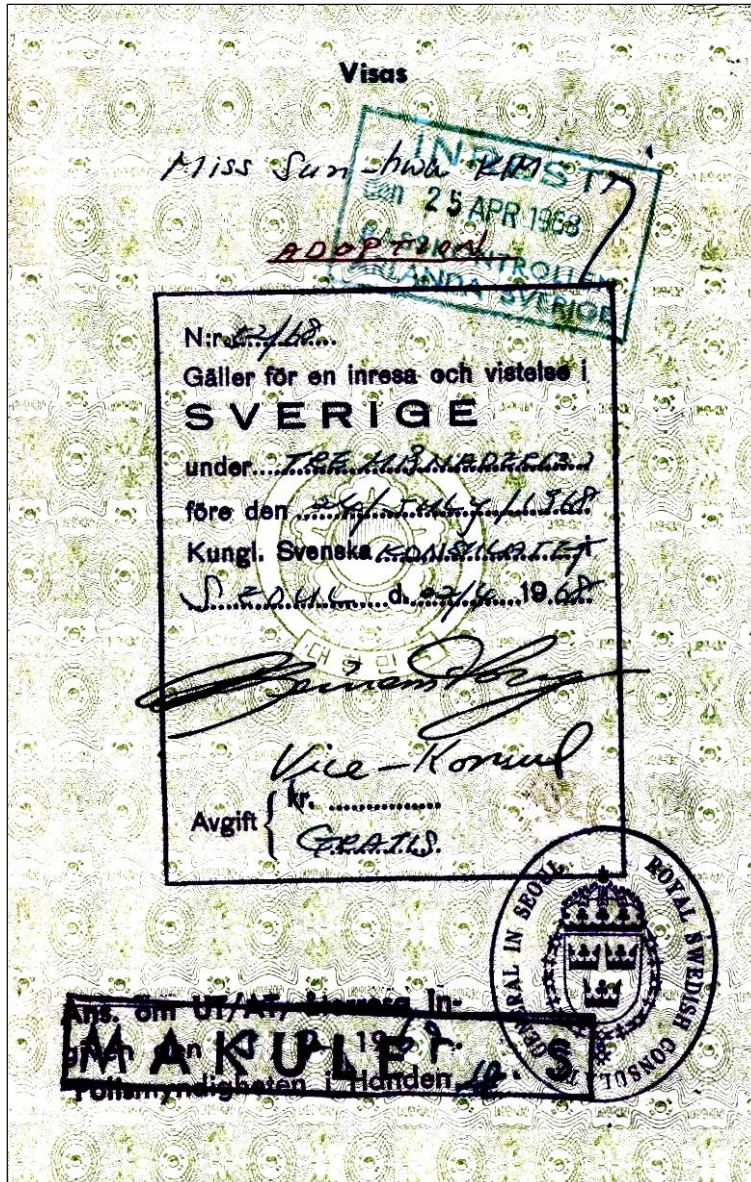 Visas
Miss Sun-hwa KIM
INREST
den 25 APR 1968
PASSKONTROLLEN
ARLANDA SVERIGE
ADOPTION
N:r 52/68
Gäller för en inresa och vistelse i
SVERIGE
under TRE MÅNADER
före den 24/JULY/1968
Kungl. Svenska KONSULATET i
SEOUL d. 1968
대한민국
Vice-Konsul
Avgift { kr.
GRATIS.
ROYAL SWEDISH CONSULATE GENERAL IN SEOUL
Ans. om UT/AT/återresa in-
given den 1968
MAKULERAS
Polismyndigheten i Handen